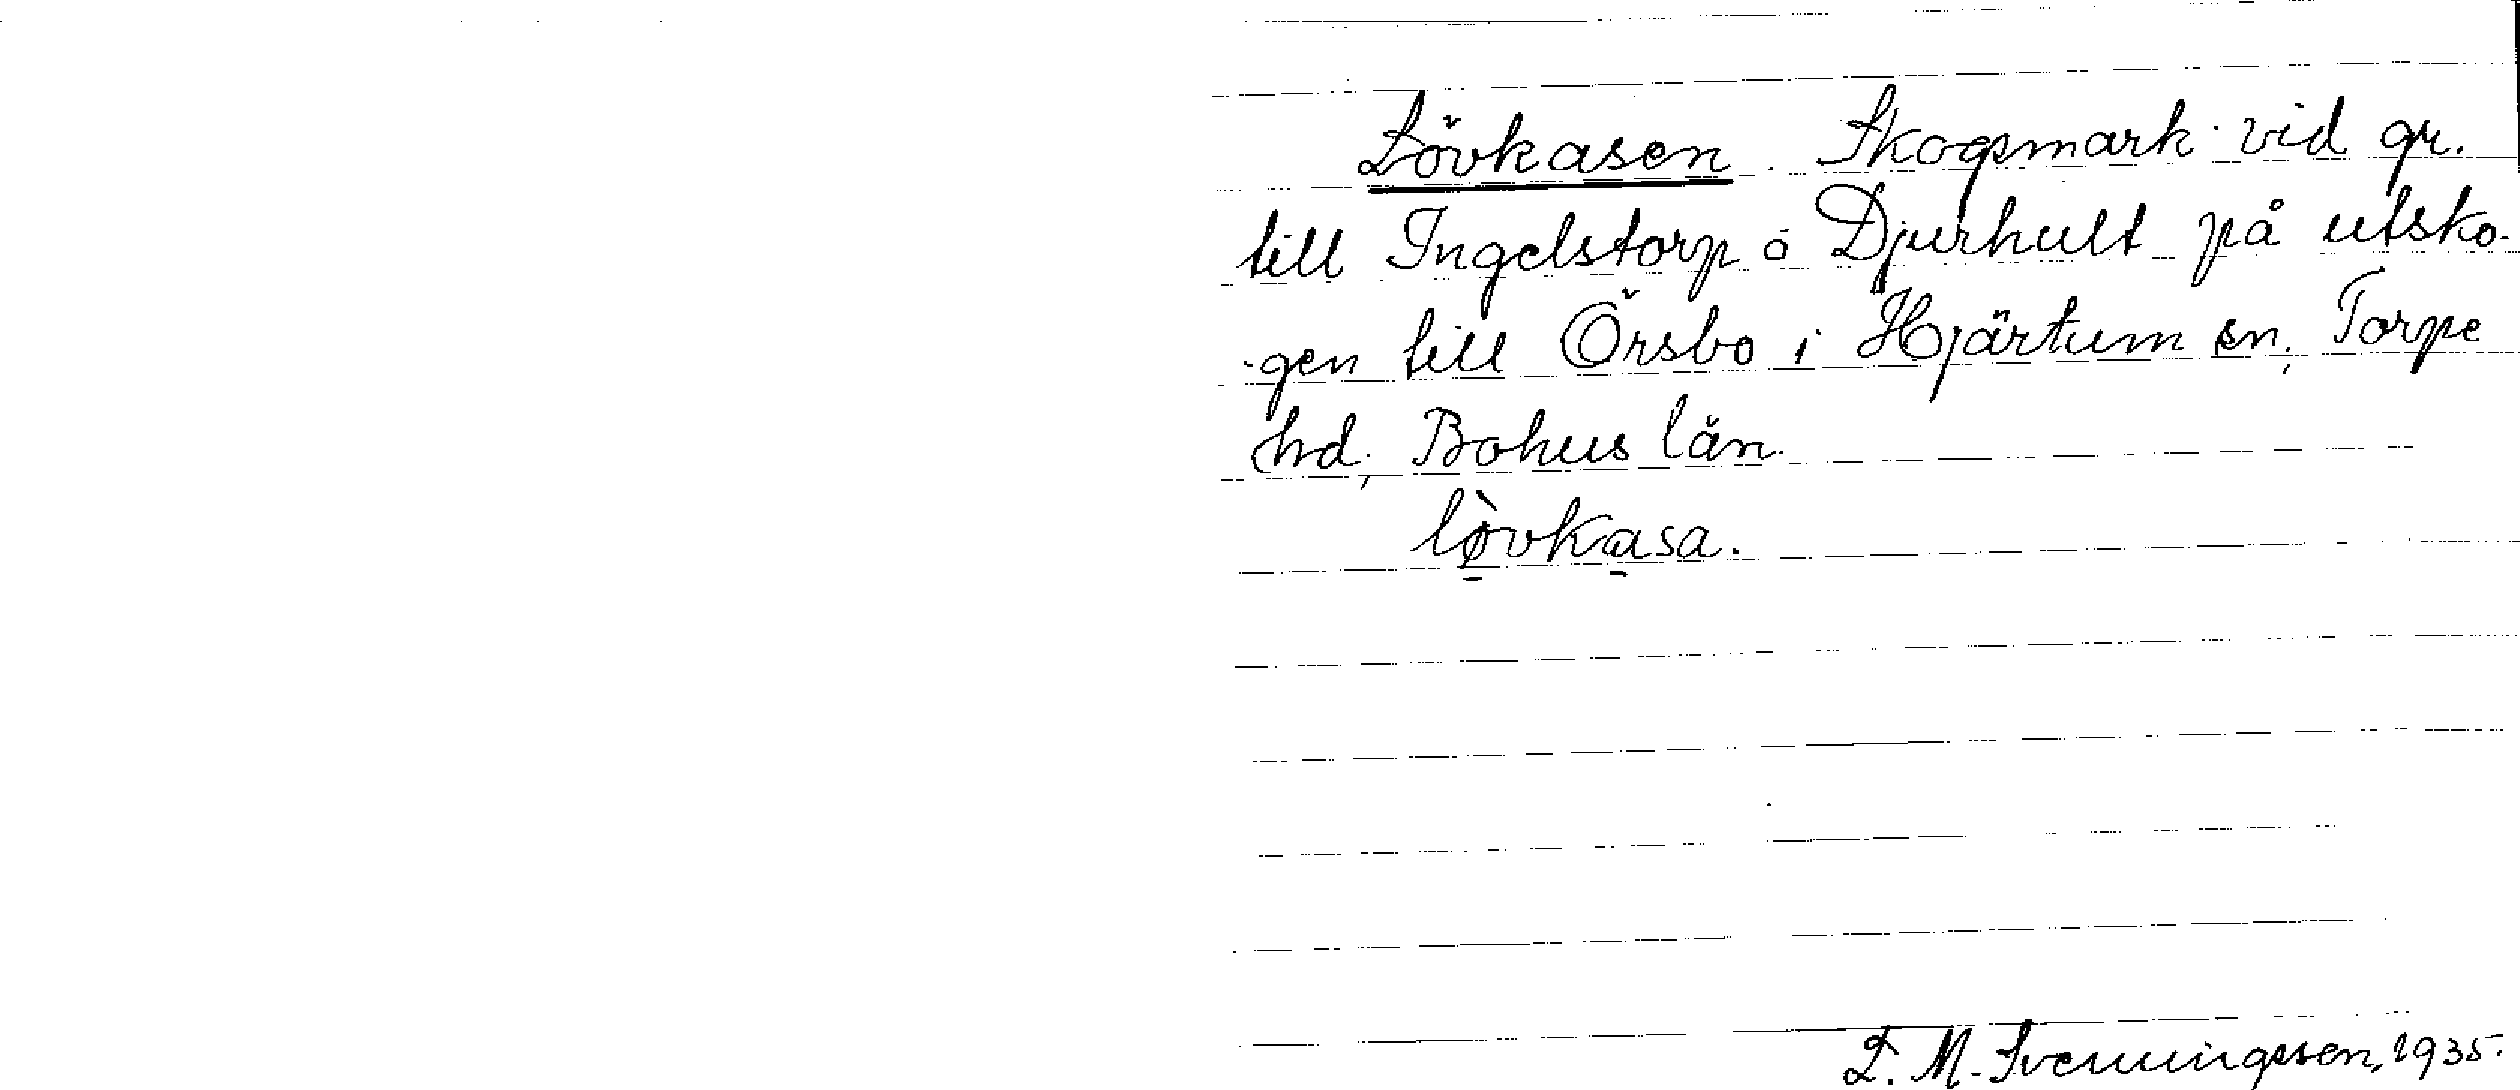 Lövkasen. Skogsmark vid gr.
till Ingelstorp å Djurhult på utsko-
-gen till Örsbo i Hjärtum sn, Torpe
hd, Bohus län.
lø̀vkasa.
L. M. Svenningsson, 1935.